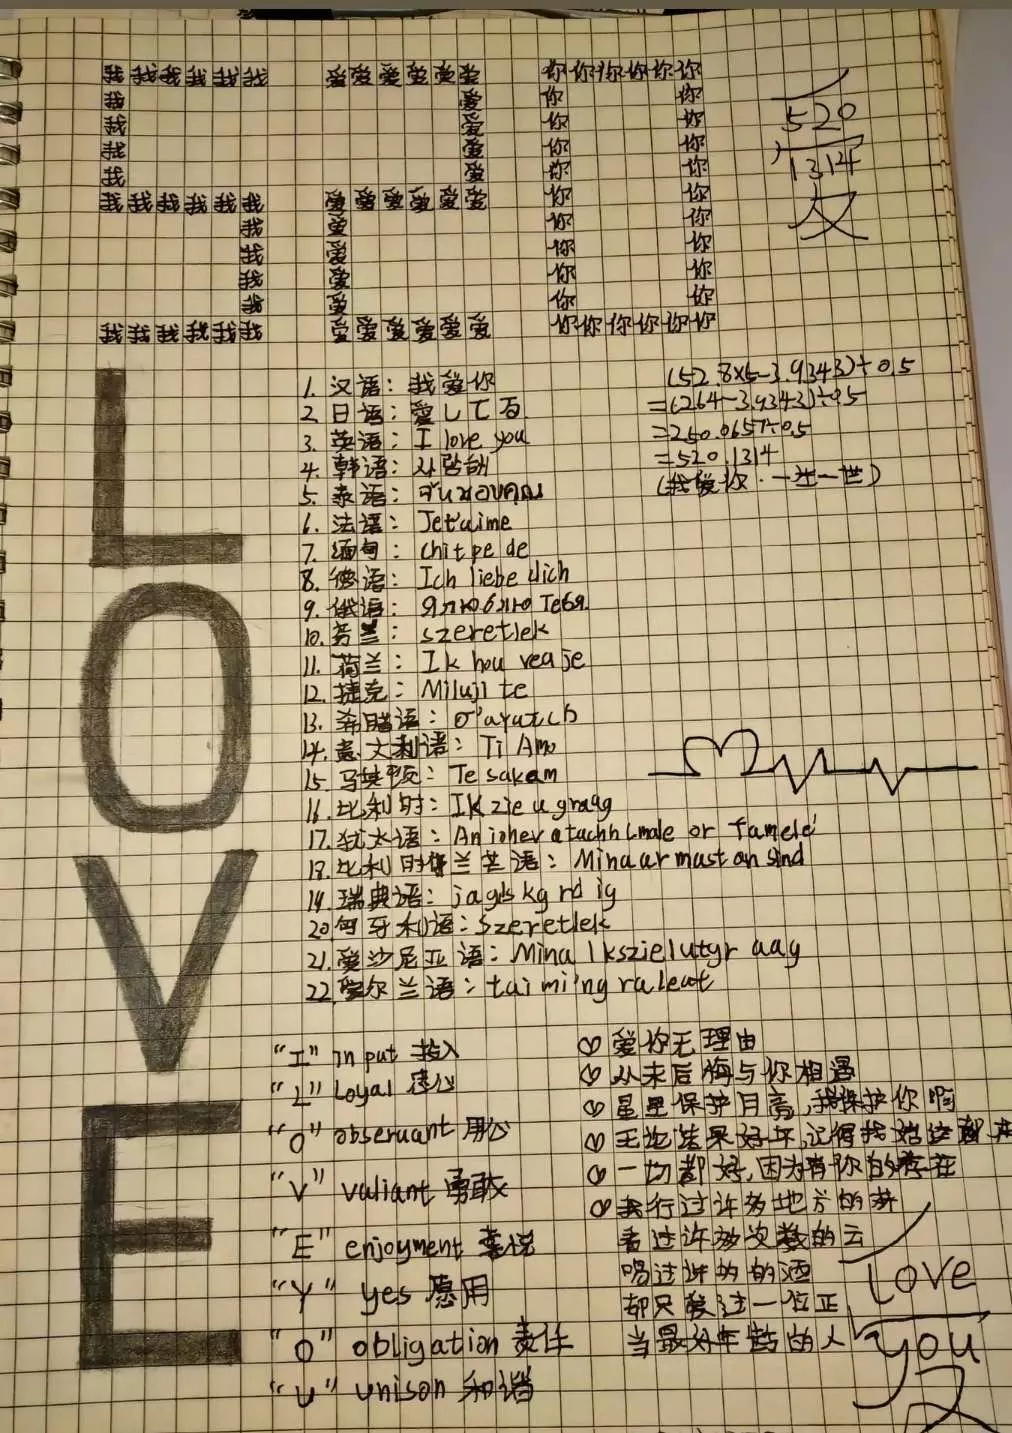 我我我我我我 爱爱爱爱爱爱 你你你你你你
我 爱 你 你
我 爱 你 你
我 爱 你 你
我 爱 你 你
我我我我我我 爱爱爱爱爱爱 你 你
我 爱 你 你
我 爱 你 你
我 爱 你 你
我 爱 你 你
我我我我我我 爱爱爱爱爱爱 你你你你你你
520
1314
友
LOVE
1. 汉语: 我爱你
2. 日语: 愛してる
3. 英语: I love you
4. 韩语: 사랑해
5. 泰语:
6. 法语: Jet'aime
7. 缅甸: chit pe de
8. 德语: Ich liebe dich
9. 俄语: Я люблю Тебя.
10. 芬兰: szeretlek
11. 荷兰: Ik hou vea je
12. 捷克: Miluji te
13. 希腊语:
14. 意大利语: Ti Amo
15. 马其顿: Te sakam
16. 比利时: IK zie u graag
17. 犹太语: Ani ohev atachh (male or famele
18. 比利时佛兰芒语: Minaar mast an sind
19. 瑞典语: jag ls kg rd ig
20. 匈牙利语: Szeretlek
21. 爱沙尼亚语: Mina lkszielutyr aay
22. 爱尔兰语: taimi'ng raleat
(52.8×5-3.9343)÷0.5
=(264-3.9343)÷0.5
=260.0657÷0.5
=520.1314
(我爱你·一生一世)
"I" in put 投入
"L" Loyal 忠心
"O" observant 用心
"V" valiant 勇敢
"E" enjoyment 喜悦
"Y" yes 愿用
"O" obligation 责任
"U" unison 和谐
爱你无理由
从未后悔与你相遇
星星保护月亮,我保护你啊
无论结果好坏,记得我站这
一切都好,因为有你的存在
我行过许多地方的桥
看过许多次数的云
喝过许的的酒
却只爱过一位正
当最好年龄的人
love
you
友